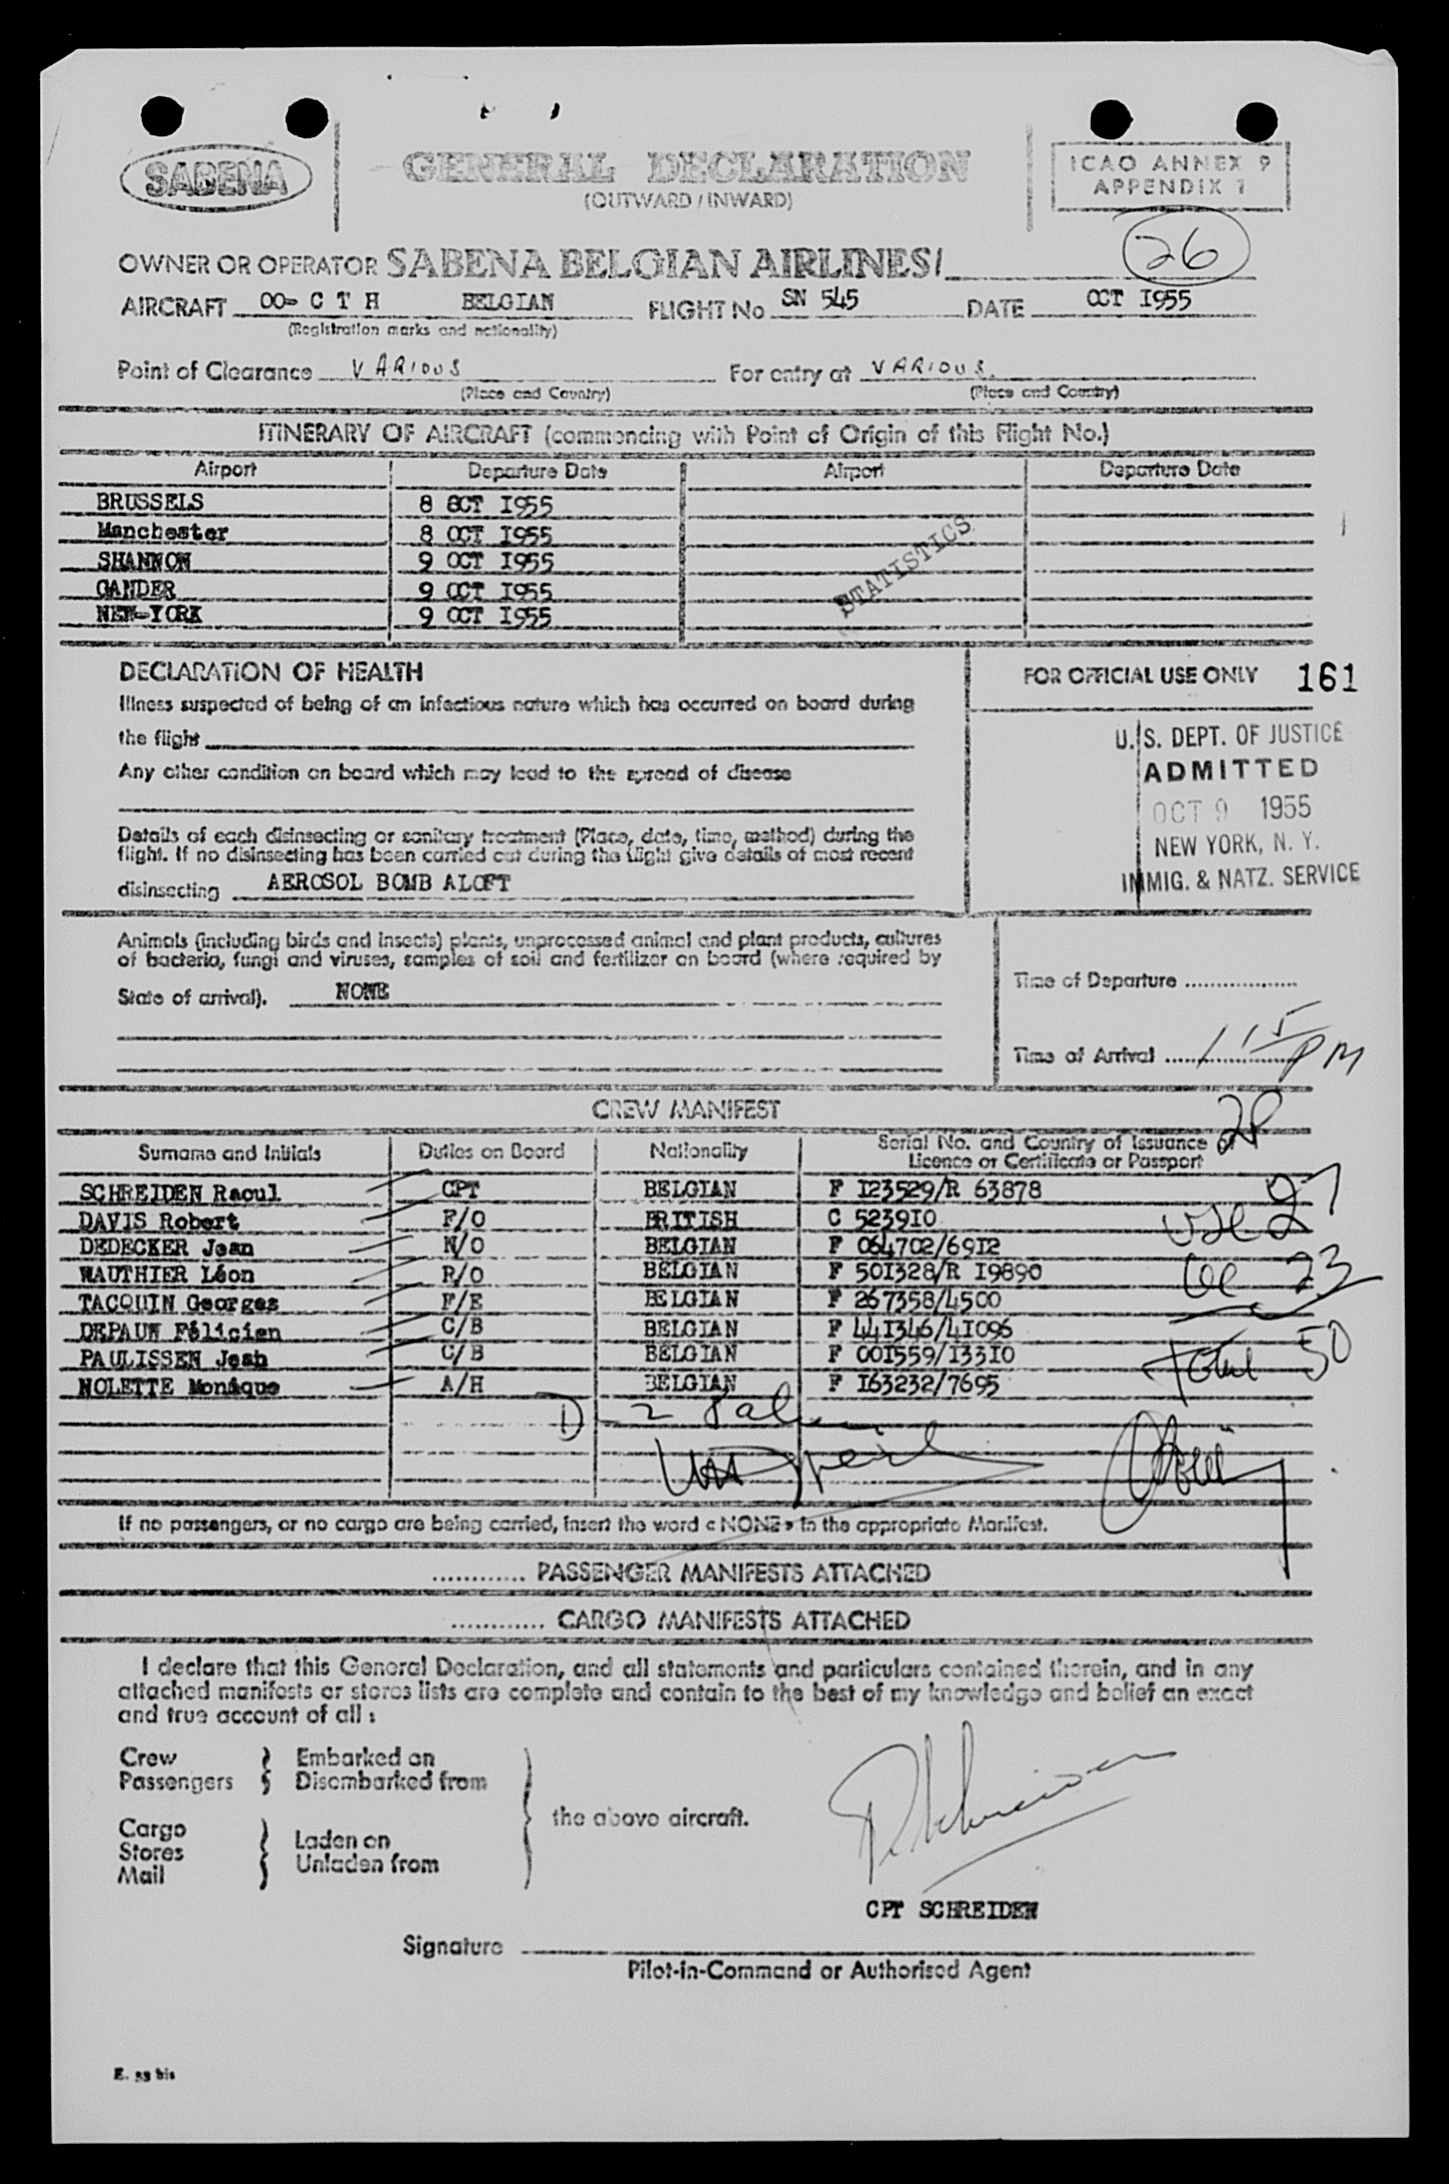 SABENA
GENERAL DECLARATION
(OUTWARD / INWARD)
ICAO ANNEX 9
APPENDIX 1
26
OWNER OR OPERATOR SABENA BELGIAN AIRLINES/
AIRCRAFT OO- C T H BELGIAN FLIGHT No SN 545 DATE OCT I955
(Registration marks and nationality)
Point of Clearance VARIOUS For entry at VARIOUS.
(Place and Country) (Place and Country)
ITINERARY OF AIRCRAFT (commencing with Point of Origin of this Flight No.)
Airport Departure Date Airport Departure Date
BRUSSELS 8 OCT I955
Manchester 8 OCT I955
SHANNON 9 OCT I955
GANDER 9 OCT I955
NEW-YORK 9 OCT I955
STATISTICS
DECLARATION OF HEALTH
Illness suspected of being of an infectious nature which has occurred on board during
the flight
Any other condition on board which may lead to the spread of disease
Details of each disinsecting or sanitary treatment (Place, date, time, method) during the
flight. If no disinsecting has been carried out during the flight give details of most recent
disinsecting AEROSOL BOMB ALOFT
FOR OFFICIAL USE ONLY 161
U. S. DEPT. OF JUSTICE
ADMITTED
OCT 9 1955
NEW YORK, N. Y.
IMMIG. & NATZ. SERVICE
Animals (including birds and insects) plants, unprocessed animal and plant products, cultures
of bacteria, fungi and viruses, samples of soil and fertilizer on board (where required by
State of arrival). NONE
Time of Departure ...................
Time of Arrival ...... 1 15 PM
CREW MANIFEST
Surname and Initials Duties on Board Nationality Serial No. and Country of Issuance of
Licence or Certificate or Passport
SCHREIDEN Raoul CPT BELGIAN F I23529/R 63878
DAVIS Robert F/O BRITISH C 5239IO
DEDECKER Jean N/O BELGIAN F 064702/69I2
WAUTHIER Léon R/O BELGIAN F 50I328/R I9890
TACQUIN Georges F/E BELGIAN F 267358/4500
DEPAUW Félicien C/B BELGIAN F 44I346/4I096
PAULISSEN Jean C/B BELGIAN F 00I559/I33I0
NOLETTE Monique A/H BELGIAN F I63232/7695
27
23
Total 50
If no passengers, or no cargo are being carried, insert the word « NONE » in the appropriate Manifest.
............ PASSENGER MANIFESTS ATTACHED
............ CARGO MANIFESTS ATTACHED
I declare that this General Declaration, and all statements and particulars contained therein, and in any
attached manifests or stores lists are complete and contain to the best of my knowledge and belief an exact
and true account of all :
Crew Embarked on
Passengers Disembarked from
the above aircraft.
Cargo
Stores Laden on
Mail Unladen from
CPT SCHREIDEN
Signature
Pilot-in-Command or Authorised Agent
E. 33 bis